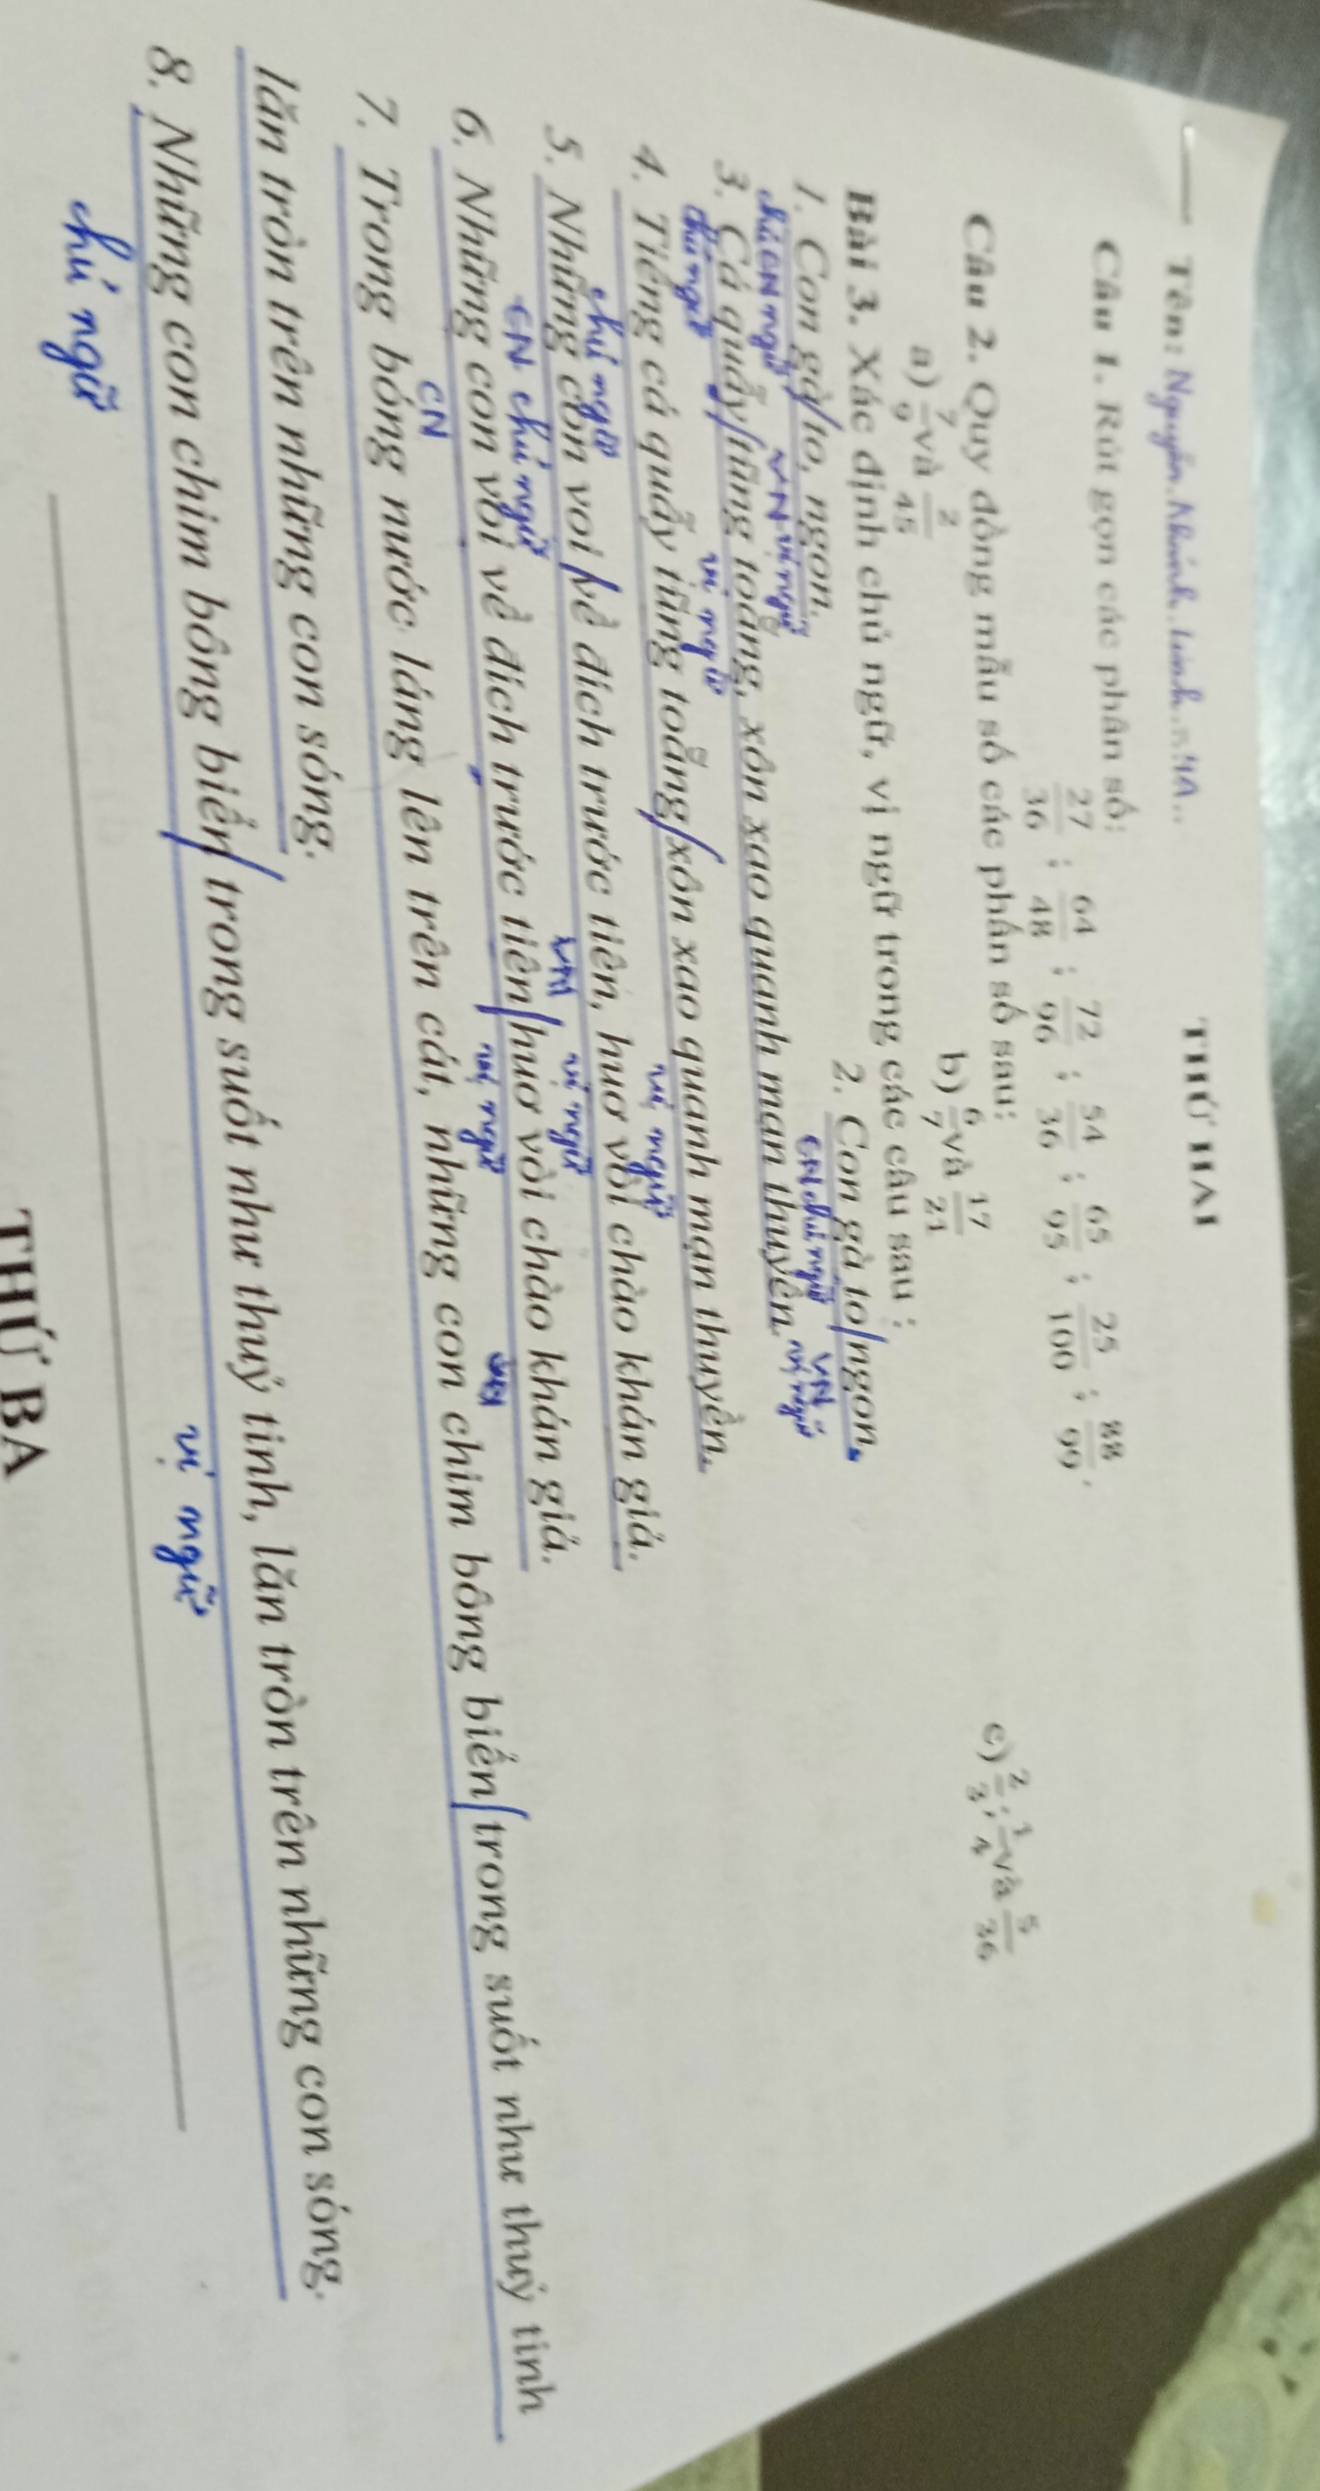 THỨ HAI
Tên: Nguyễn Khánh Linh 4A
Câu 1. Rút gọn các phân số:
27/36 ; 64/48 ; 72/96 ; 54/36 ; 65/95 ; 25/100 ; 88/99 .
Câu 2. Quy đồng mẫu số các phân số sau:
a) 7/9 và 2/45 b) 6/7 và 17/21 c) 2/3 ; 1/4 và 5/36
Bài 3. Xác định chủ ngữ, vị ngữ trong các câu sau :
1. Con gà/to, ngon. 2. Con gà to/ngon.
CN chủ ngữ VN vị ngữ CN chủ ngữ VN vị ngữ
3. Cá quẫy/tũng toẵng, xôn xao quanh mạn thuyền.
chủ ngữ vị ngữ
4. Tiếng cá quẫy tũng toẵng/xôn xao quanh mạn thuyền.
chủ ngữ vị ngữ
5. Những con voi/về đích trước tiên, huơ vòi chào khán giả.
CN chủ ngữ VN vị ngữ
6. Những con voi về đích trước tiên/huơ vòi chào khán giả.
CN vị ngữ VN
7. Trong bóng nước láng lên trên cát, những con chim bông biển/trong suốt như thuỷ tinh
lăn tròn trên những con sóng.
8. Những con chim bông biển/trong suốt như thuỷ tinh, lăn tròn trên những con sóng.
chủ ngữ vị ngữ
THỨ BA